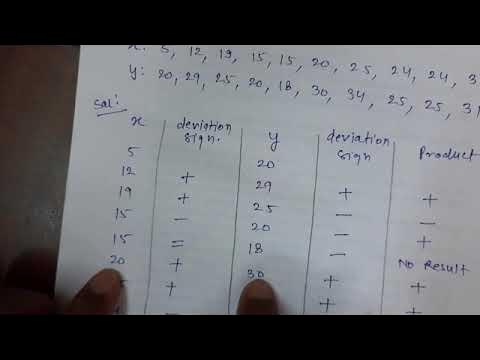 x: 5, 12, 19, 15, 15, 20, 25, 24, 24, 3
y: 20, 29, 25, 20, 18, 30, 34, 25, 25, 31
Sol:
x deviation sign. y deviation sign Product
5 20
12 + 29 + +
19 + 25 - -
15 - 20 - +
15 = 18 - No Result
20 + 30 + +
+ + +
-